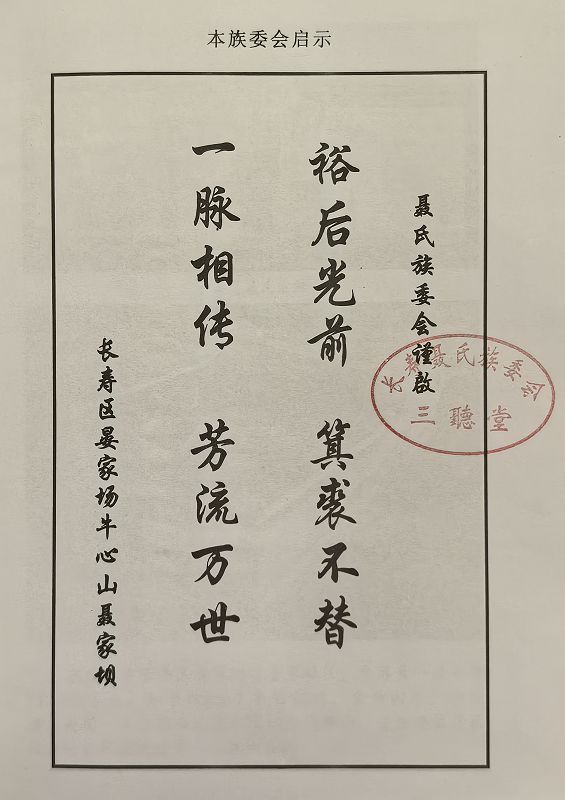 本族委会启示
聂氏族委会谨啟
裕后光前 箕裘不替
一脉相传 芳流万世
长寿区晏家场牛心山聂家坝
长寿聂氏族委会
三聽堂